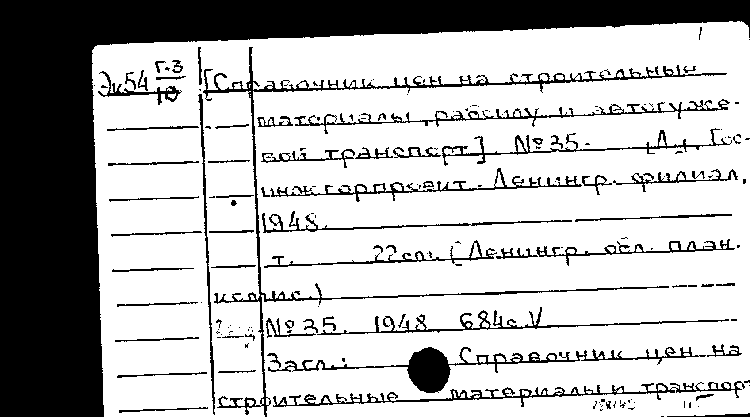 Эк54 Г-3/10 [Справочник цен на строительные
материалы, рабсилу и автогуже-
вой транспорт]. №35. [Л.], Гос-
инжгорпроект. Ленингр. филиал,
1948.
т. 22см. (Ленингр. обл. план.
комис.)
№35. 1948. 684с. V
Загл.: Справочник цен на
строительные материалы и транспорт